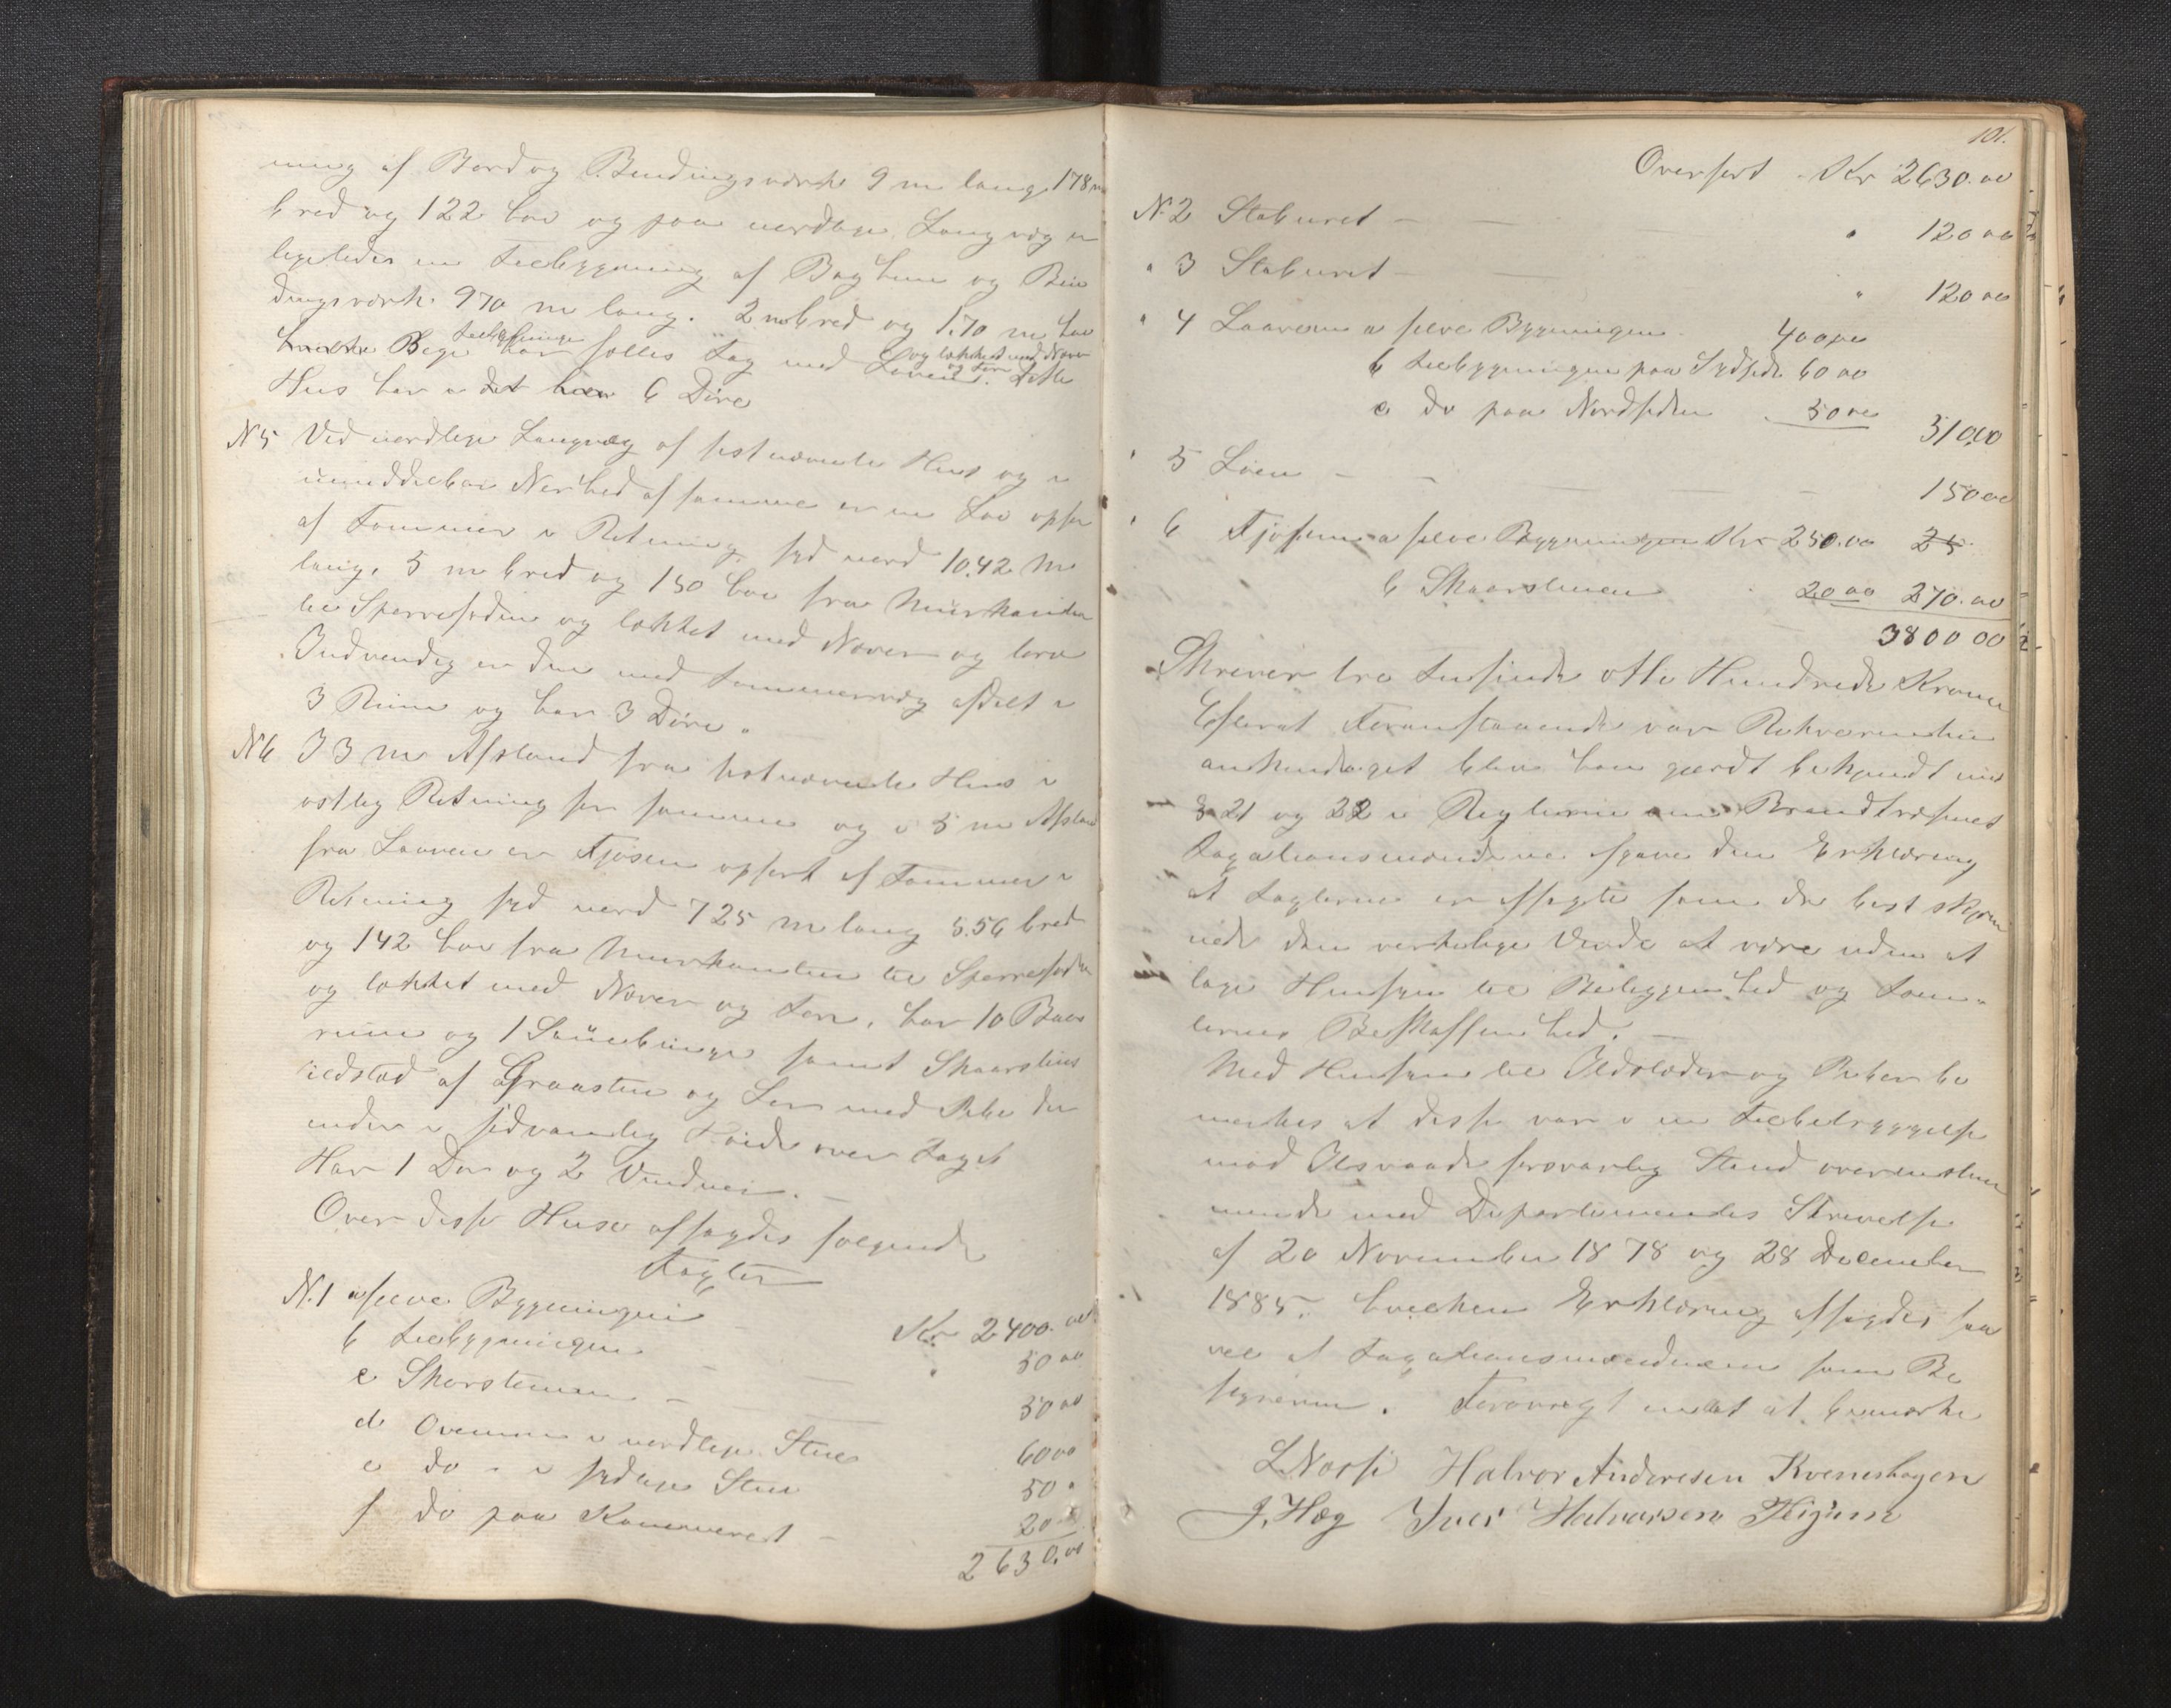 ning af Bord og Bindingsværk 9 m lang 178 m
bred og 122 høi og paa nordlige Langvæg er
ligeledes en Tilbygning af Baghun og Bin
dingsværk 970 m lang. 2 m bred og 1.70 m høi
Tilbygninge og tækket med Næver
Begge har fælles Tag med Laaven. og Torv Dette
Hus har 6 Døre
N 5 Ved nordlige Langvæg af sistnævnte Hus og i
umiddelbar Nærhed af samme er en Lø opført
af Tømmer i Retning syd nord 10.42 m
lang, 5 m bred og 150 høi fra Murkanten
til Sperrefoden og tækket med Næver og torv
Indvendig er den med Tømmervæg afdelt i
3 Rum og har 3 Døre.
N 6 I 3 m Afstand fra sistnævnte Hus i
østlig Retning for samme og i 5 m Afstand
fra Laaven er Fjøsen opført af Tømmer i
Retning syd nord 725 m lang 5.56 bred
og 142 høi fra Murkanten til Sperrefoden
og tækket med Næver og Torv, har 10 Baas
rum og 1 Sauebinge samt Skaarstens
ildsted af Graasten og Ler med Pibe der
ender i sædvanlig Høide over Taget
Har 1 Dør og 2 Vinduer. -
Over disse Huse afsagdes følgende
Taxter
N. 1 a selve Bygningen Kr 2400.00
b Tilbygningen - " 50 00
c Skorstenen - 50 00
d Ovnen i nordlige Stue 60 00
e do - i sydlige Stue 50 "
f do paa Kammerset - 20
2630.00
101.
Overført - Kr 2630.00
N. 2 Staburet - - " 120 00
" 3 Staburet - - " 120 00
" 4 Laaven a selve Bygningen 400 00
b tilbygningen paa Sydside 60 00
c do paa Nordsiden 50 00
510,00
" 5 Løen - - - - - 150 00
" 6 Fjøsen a selve Bygningen Kr 250.00 25
b Skaarstenen " 20 00 270.00
3800 00
Skriver tre tusinde otte Hundrede Kroner
Efterat Foranstaaende var Rekvirenten
ankyndiget blev han gjordt bekjendt med
§ 21 og 22 i Reglerne om Brandtræfnes
Taxationsmændene afgave den Erklæring
at taxterne er afsagte som de best skjøn
nede den verkelige Værde at være uden at
tage Hensyn til Beliggenhed og Tom-
ternes Beskaffenhed. -
Med Hensyn til Ildsteder og Piber be
mærkes at disse var i en tilbetryggelse
mod Ildsvaade forsvarlig Stand overenstem
mende med Departementets Skrivelse
af 20 November 1878 og 28 December
1885. hvilken Erklæring afsagdes saa
vel af Taxationsmændene som Be
styreren. Forøvrigt intet at bemærke
L Noss Halvor Andersen Kveneshagen
J. Hæg Iver Halvorsen